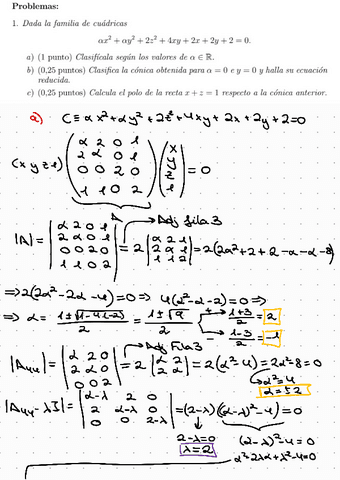 Problemas:
1. Dada la familia de cuádricas
αx² + αy² + 2z² + 4xy + 2x + 2y + 2 = 0.
a) (1 punto) Clasifícala según los valores de α ∈ ℝ.
b) (0,25 puntos) Clasifica la cónica obtenida para α = 0 e y = 0 y halla su ecuación
reducida.
c) (0,25 puntos) Calcula el polo de la recta x + z = 1 respecto a la cónica anterior.
a) C ≡ αx² + αy² + 2z² + 4xy + 2x + 2y + 2 = 0
(x y z 1) (α 2 0 1 / 2 α 0 1 / 0 0 2 0 / 1 1 0 2) (x / y / z / 1) = 0
A
Adj fila 3
|A| = |α 2 0 1 / 2 α 0 1 / 0 0 2 0 / 1 1 0 2| = 2 |α 2 1 / 2 α 1 / 1 1 2| = 2(2α² + 2 + 2 - α - α - 8)
⇒ 2(2α² - 2α - 4) = 0 ⇒ 4(α² - α - 2) = 0 ⇒
⇒ α = 1 ± √1-4(-2) / 2 = 1 ± √9 / 2 + → 1+3 / 2 = 2
- → 1-3 / 2 = -1
Adj Fila 3
|A₄₄| = |α 2 0 / 2 α 0 / 0 0 2| = 2 |α 2 / 2 α| = 2(α² - 4) = 2α² - 8 = 0
α² = 4
α = ±2
|A₄₄ - λI| = |α-λ 2 0 / 2 α-λ 0 / 0 0 2-λ| = (2-λ)((α-λ)² - 4) = 0
2-λ = 0 (α-λ)² - 4 = 0
λ = 2 α² - 2λα + λ² - 4 = 0